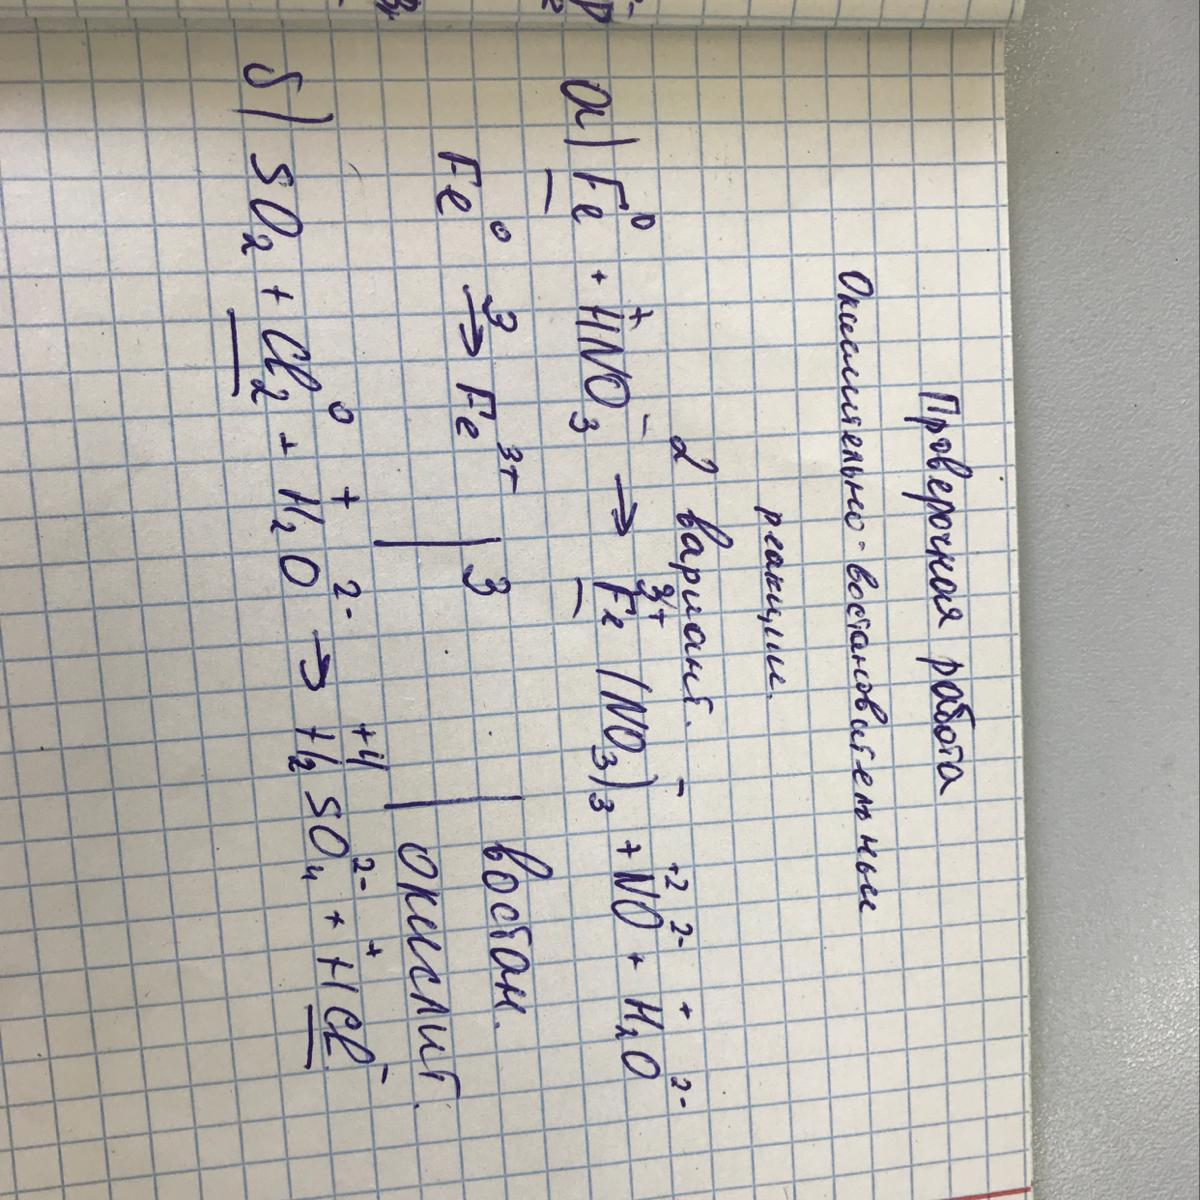 Проверочная работа
Окислительно-востановительные
реакции.
2 вариант.
а) Fe⁰ + H⁺NO₃⁻ → Fe³⁺(NO₃)₃⁻ + N⁺²O²⁻ + H₂⁺O²⁻
Fe⁰ 3→ Fe³⁺ | 3 | востан.
окислит.
б) SO₂ + Cl₂⁰ + H₂⁺O²⁻ → H₂⁺SO₄²⁻ + H⁺Cl⁻